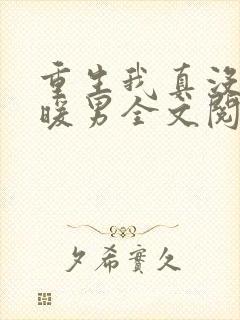 重生我真没
暖男全文阅
夕希實久